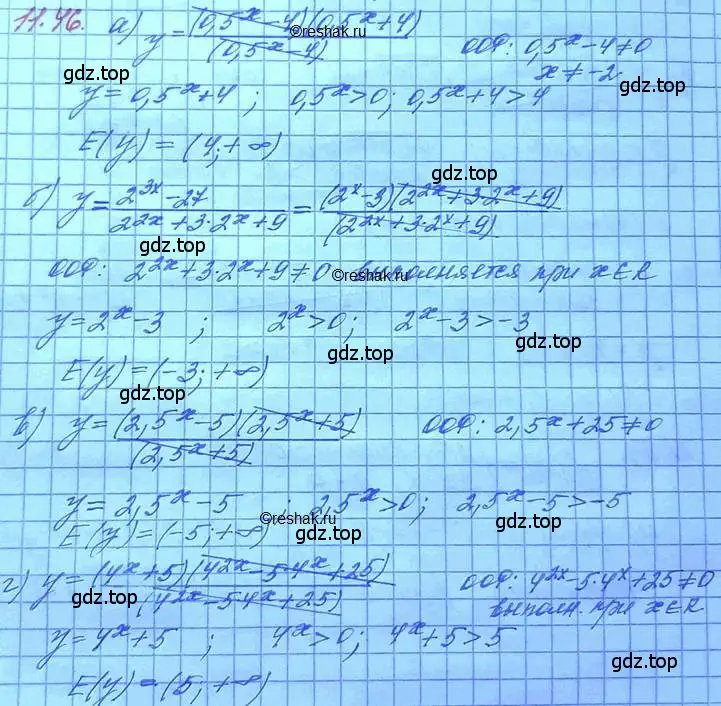 11.46. а) y = (0,5^x-4)(0,5^x+4) / (0,5^x-4) ООФ: 0,5^x-4≠0
x≠-2
©reshak.ru
gdz.top
gdz.top
y = 0,5^x+4 ; 0,5^x>0; 0,5^x+4>4
E(y) = (4;+∞)
gdz.top
б) y = 2^{3x}-27 / 2^{2x}+3·2^x+9 = (2^x-3)(2^{2x}+3·2^x+9) / (2^{2x}+3·2^x+9)
gdz.top
ООФ: 2^{2x}+3·2^x+9≠0 выполняется при x∈R
©reshak.ru
y = 2^x-3 ; 2^x>0; 2^x-3>-3
gdz.top
E(y) = (-3;+∞)
gdz.top
в) y = (2,5^x-5)(2,5^x+5) / (2,5^x+5) ООФ: 2,5^x+25≠0
gdz.top
y = 2,5^x-5 ; 2,5^x>0; 2,5^x-5>-5
gdz.top
E(y) = (-5;+∞)
©reshak.ru
г) y = (4^x+5)(4^{2x}-5·4^x+25) / (4^{2x}-5·4^x+25) ООФ: 4^{2x}-5·4^x+25≠0
gdz.top
выполн. при x∈R
y = 4^x+5 ; 4^x>0; 4^x+5>5
gdz.top
gdz.top
E(y) = (5;+∞)